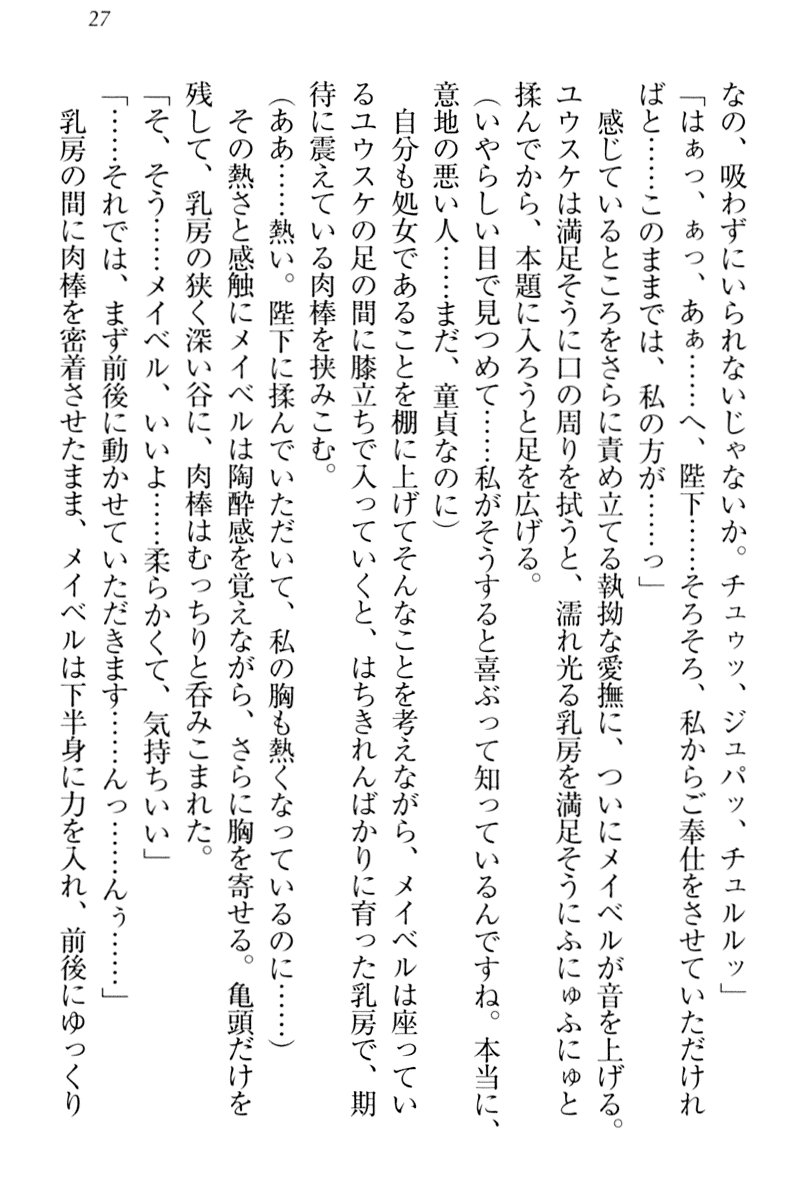 27
なの、吸わずにいられないじゃないか。チュゥッ、ジュパッ、チュルルッ」
「はぁっ、ぁっ、あぁ……へ、陛下……そろそろ、私からご奉仕をさせていただけれ
ばと……このままでは、私の方が……っ」
感じているところをさらに責め立てる執拗な愛撫に、ついにメイベルが音を上げる。
ユウスケは満足そうに口の周りを拭うと、濡れ光る乳房を満足そうにふにゅふにゅと
揉んでから、本題に入ろうと足を広げる。
(いやらしい目で見つめて……私がそうすると喜ぶって知っているんですね。本当に、
意地の悪い人……まだ、童貞なのに)
自分も処女であることを棚に上げてそんなことを考えながら、メイベルは座ってい
るユウスケの足の間に膝立ちで入っていくと、はちきれんばかりに育った乳房で、期
待に震えている肉棒を挟みこむ。
(ああ……熱い。陛下に揉んでいただいて、私の胸も熱くなっているのに……)
その熱さと感触にメイベルは陶酔感を覚えながら、さらに胸を寄せる。亀頭だけを
残して、乳房の狭く深い谷に、肉棒はむっちりと呑みこまれた。
「そ、そう……メイベル、いいよ……柔らかくて、気持ちいい」
「……それでは、まず前後に動かせていただきます……んっ……んぅ……」
乳房の間に肉棒を密着させたまま、メイベルは下半身に力を入れ、前後にゆっくり